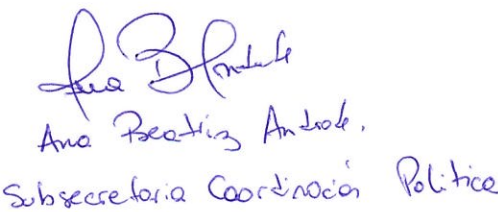 Ana B Andrade
Ana Beatriz Andrade.
Subsecretaria Coordinación Politica